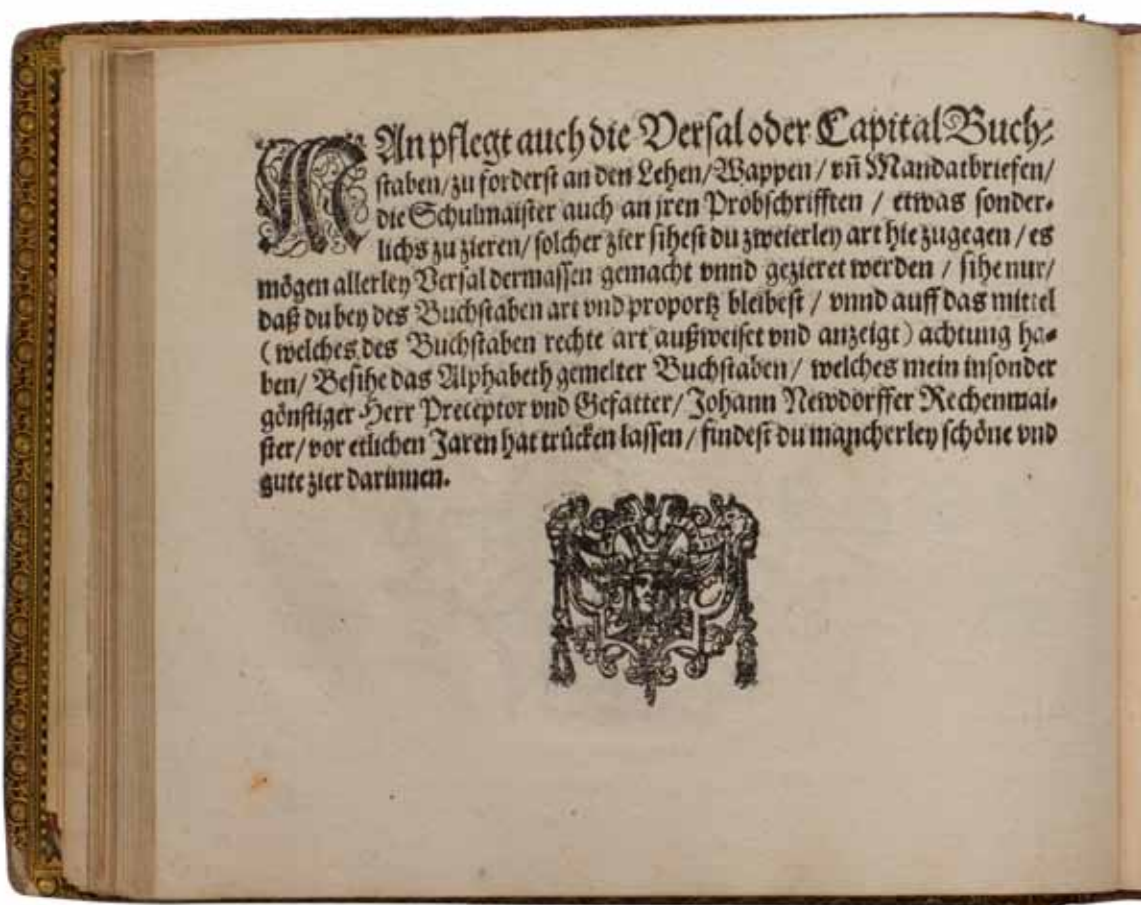 MAn pflegt auch die Versal oder Capital Buch⸗
staben/zu forderst an den Lehen/Wappen / vñ Mandatbriefen/
die Schulmaister auch an jren Probschrifften / etwas sonder⸗
lichs zu zieren/ solcher zier sihest du zweierley art hie zugegen / es
mögen allerley Versal dermassen gemacht vnnd gezieret werden / sihe nur/
daß du bey des Buchstaben art vnd proportz bleibest / vnnd auff das mittel
( welches des Buchstaben rechte art außweiset vnd anzeigt ) achtung ha⸗
ben/ Besihe das Alphabeth gemelter Buchstaben / welches mein insonder
gönstiger Herr Preceptor vnd Gefatter/ Johann Newdörffer Rechenmai⸗
ster/ vor etlichen Jaren hat trücken lassen / findest du mancherley schöne vnd
gute zier darinnen.